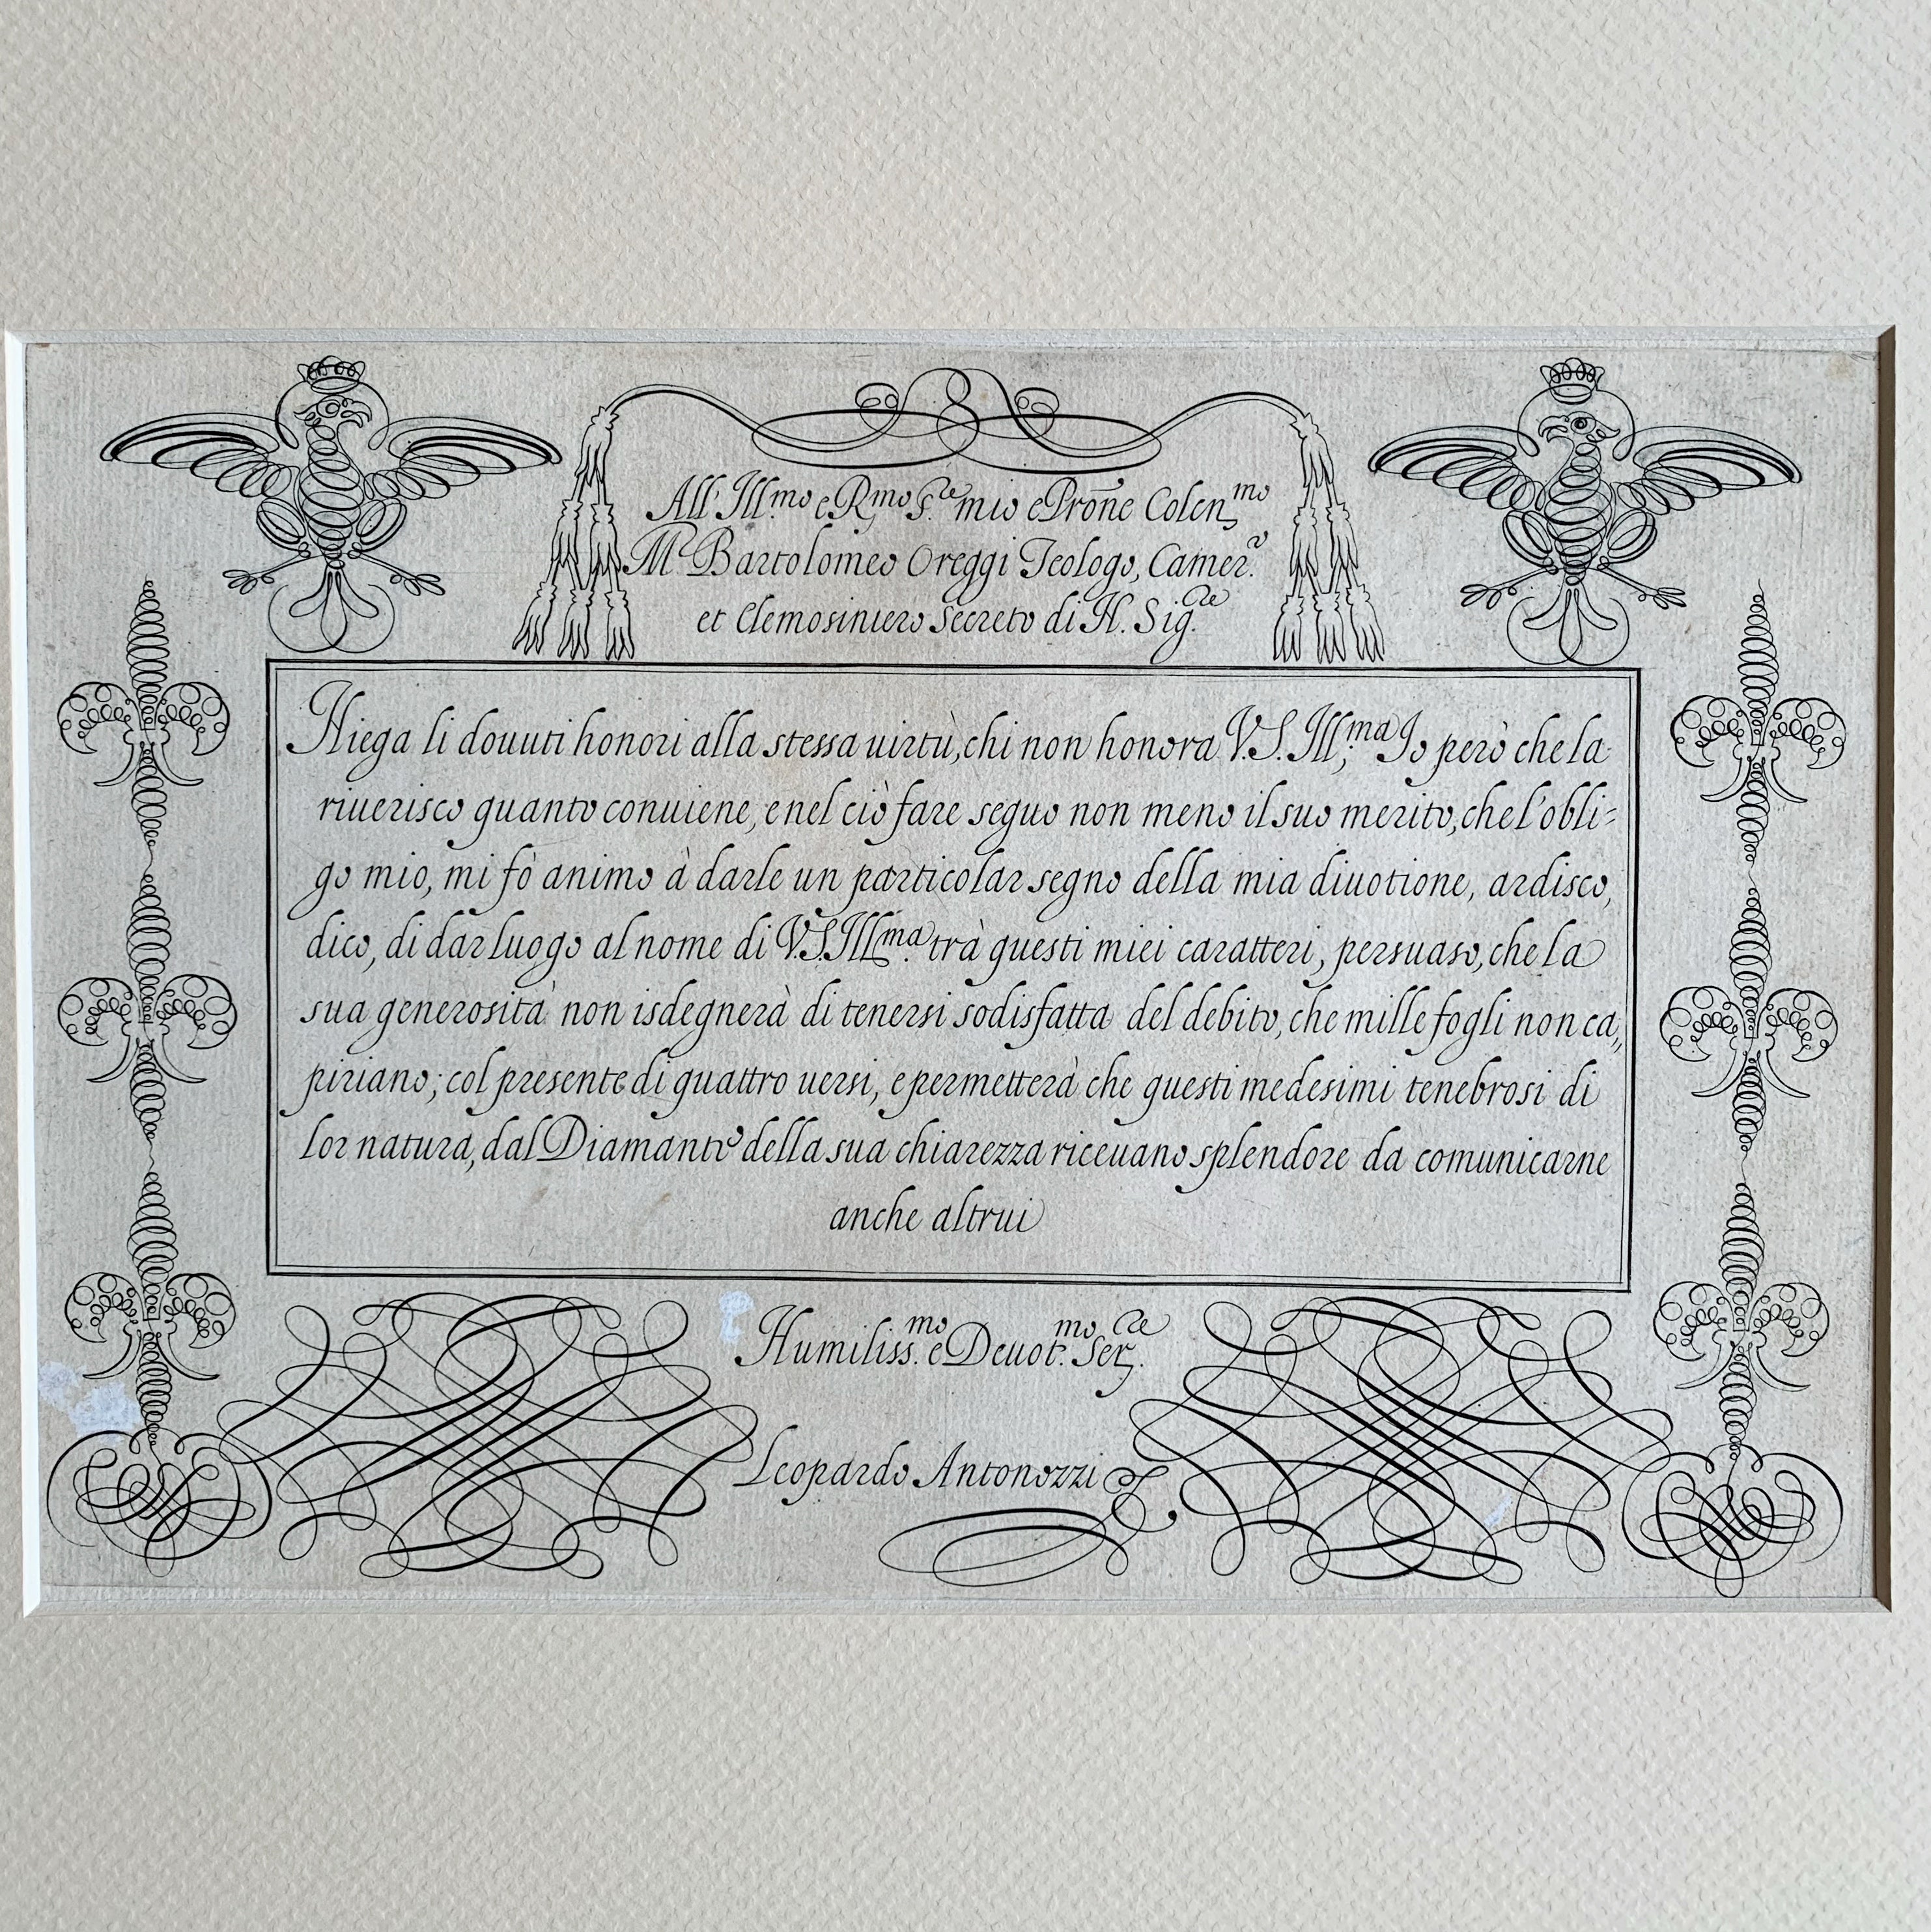 All' Ill.mo e R.mo S.re mio e Prōne Colen.mo
M.r Bartolomeo Oreggi Teologo, Camer.o
et Elemosiniero Secreto di N. Sig.re
Niega li douuti honori alla stessa uirtù, chi non honora V.S. Ill.ma Io però che la
riuerisco quanto conuiene, e nel ciò fare seguo non meno il suo merito, che l'obli=
go mio, mi fò animo à darle un particolar segno della mia diuotione, ardisco,
dico, di dar luogo al nome di V.S. Ill.ma trà questi miei caratteri, persuaso, che la
sua generosità non isdegnerà di tenersi sodisfatta del debito, che mille fogli non ca„
piriano; col presente di quattro uersi, e permetterà che questi medesimi tenebrosi di
lor natura, dal Diamante della sua chiarezza riceuano splendore da comunicarne
anche altrui
Humiliss.mo e Deuot.mo Ser.re
Leopardo Antonozzi